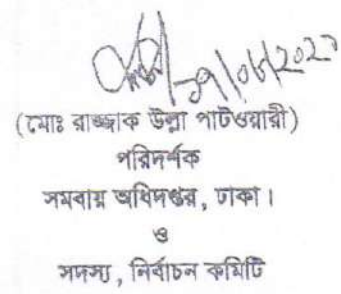 (মোঃ রাজ্জাক উল্লা পাটওয়ারী)
পরিদর্শক
সমবায় অধিদপ্তর, ঢাকা।
ও
সদস্য, নির্বাচন কমিটি